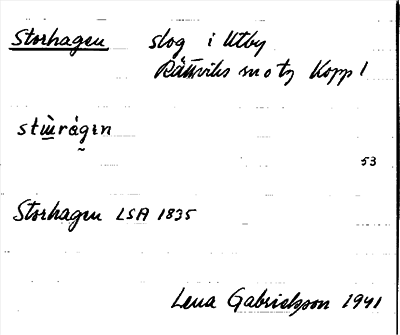 Storhagen slog i Utby
Rättviks sn o tg Kopp l
stùrágɪn
53
Storhagen LSA 1835
Lena Gabrielsson 1941